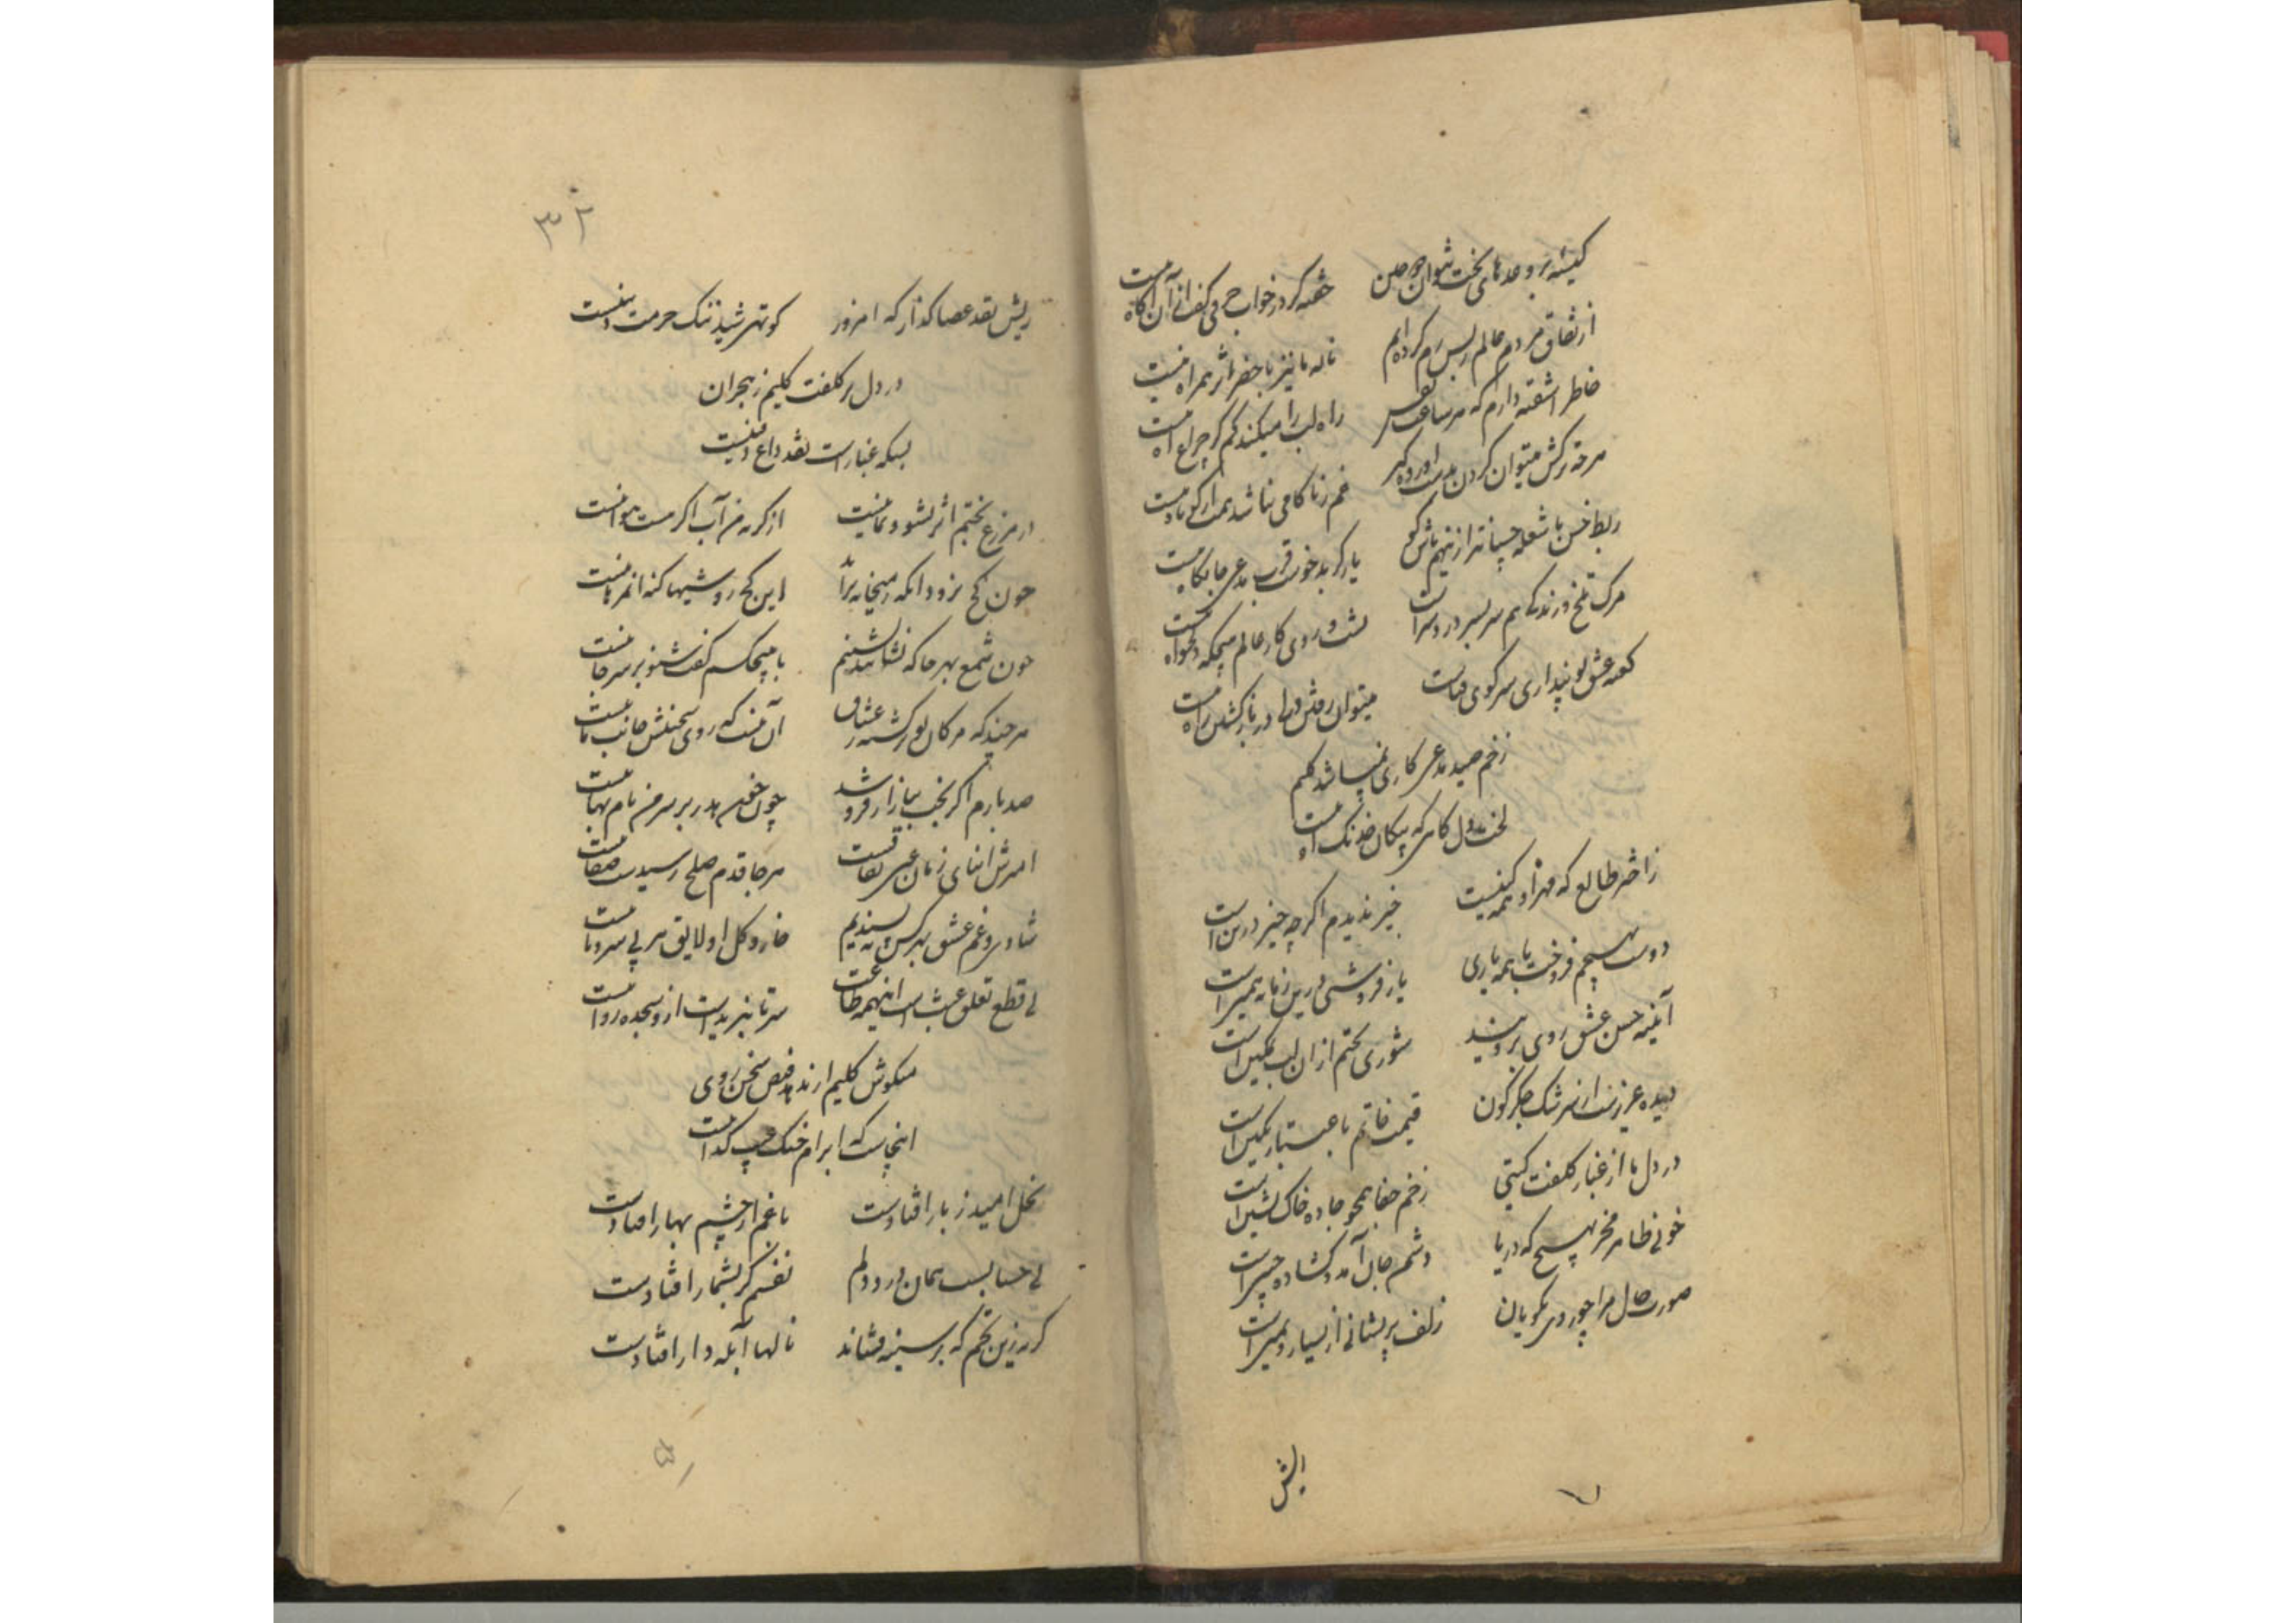 کیسه بر وعدهای بخت نتوان دوختن
خفته گر در خواب حرفی گفت از آن آگاه نیست
از نفاق مردم عالم ز بس رم کرده ایم
ناله ما نیز با خضر اثر همراه نیست
خاطر آشفته دارم که هر ساعت نفس
راه لب را میکند گم گر چراغ آه نیست
هر چه ترکش میتوان کردن بدست آورده گیر
غم ز ناکامی نباشد همت ار کوتاه نیست
ربط خس با شعله چسپانتر ازینهم باش گو
یار گر بدخوست قرب مدعی جانکاه نیست
مرک تلخ و زندگی هم سر بسر درد سر است
پشت و روی کار عالم هیچیک دلخواه نیست
کعبه عشق تو پنداری سر کوی فناست
میتوان رفتن ولی در بازگشتن راه نیست
زخم صید مدعی کاری نمیباشد کلیم
لخت دل گاهی که پیکان خدنک آه نیست
ز اختر طالع که مهر او همه کینست
خیر ندیدم اگر چه خیر درین است
دوست بهیچم فروخت با همه یاری
یار فروشی درین زمانه همین است
آینه حسن عشق روی بروی‌اند
شوری بختم از ان لب نمکین است
دیده عزیزست از سرشک جکر کون
قیمت خاتم باعتبار نکین است
در دل ما از غبار کلفت کیتی
زخم جفا همچو جاده خاک نشین است
خوبی ظاهر مخر بهیچ که دریا
دشمن جان آمد و کشاده جبین است
صورت حال مرا چو روی نکویان
زلف پریشانی از یسار و یمین است
ریش
ریش نقد عصا کذار که امروز
کوتهی شید ننک حرمت دینست
در دل پر کلفت کلیم ز هجران
بسکه غبار است نقد داغ دفینست
در مزرع بختم اثر نشو و نما نیست
از کریه من آب اکر هست هوا نیست
چون کج نرود آنکه ز میخانه برآید
این کج روشیها کنه از مهر ما نیست
چون شمع بهر جا که نشانند نشینم
با هیچکسم گفت شنو بر سر جا نیست
هر چند که مژگان تو برگشته ز عشاق
آن نیست که روی سخنش جانب ما نیست
صد بارم اگر بخت ببازار فروشد
چون خون هدر بر سر من نام بها نیست
آمیزش ابنای زمان عین نفاقست
هر جا قدم صلح رسیدست صفا نیست
شادی و غم عشق بهر کس نپسندیم
خار و کل او لایق هر بی سر و پا نیست
بی قطع تعلق عبث است اینهمه طاعت
سر تا نبریداست ازو سجده روا نیست
میکوش کلیم ار ندهد فیض سخن روی
اینجاست که ابرام خنک عیب گدا نیست
نخل امید ز بار افتادست
باغم از چشم بهار افتادست
بی حسابست همان درد دلم
نفسم گر بشمار افتادست
گریه زین تخم که بر سینه فشاند
نالها آبله دار افتادست